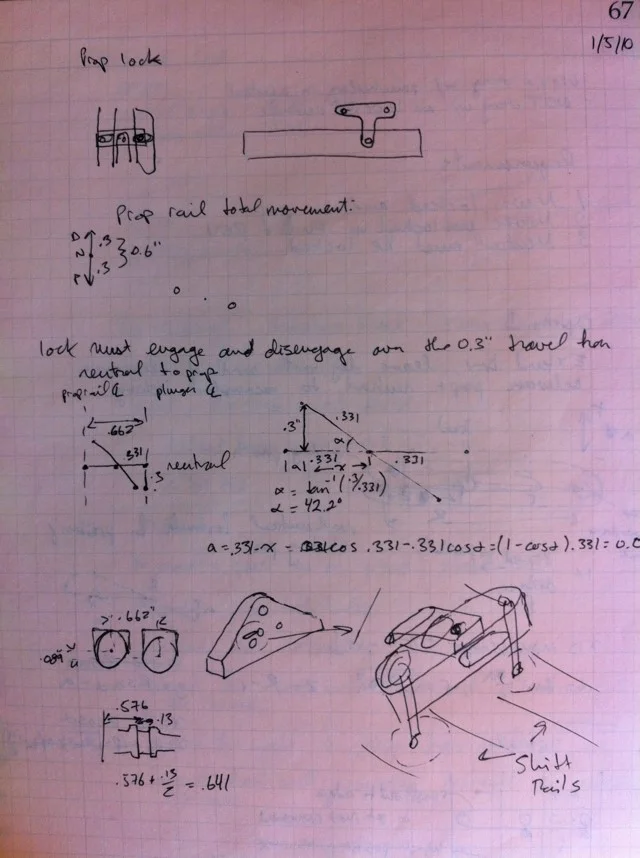 67
1/5/10
Prop lock
Prop rail total movement:
D
N
P
.3
.3
0.6"
lock must engage and disengage over the 0.3" travel from
neutral to prop
prop rail ℄
plunger ℄
.662
.331
.3
neutral
.3"
α
.331
.331
.331
|a|
x
α = tan⁻¹(.3/.331)
α = 42.2°
a = .331-x = .331-.331cosα = (1-cosα).331 = 0.0
.662"
.089"
.576
.13
.576 + .13/2 = .641
Shift
Rails